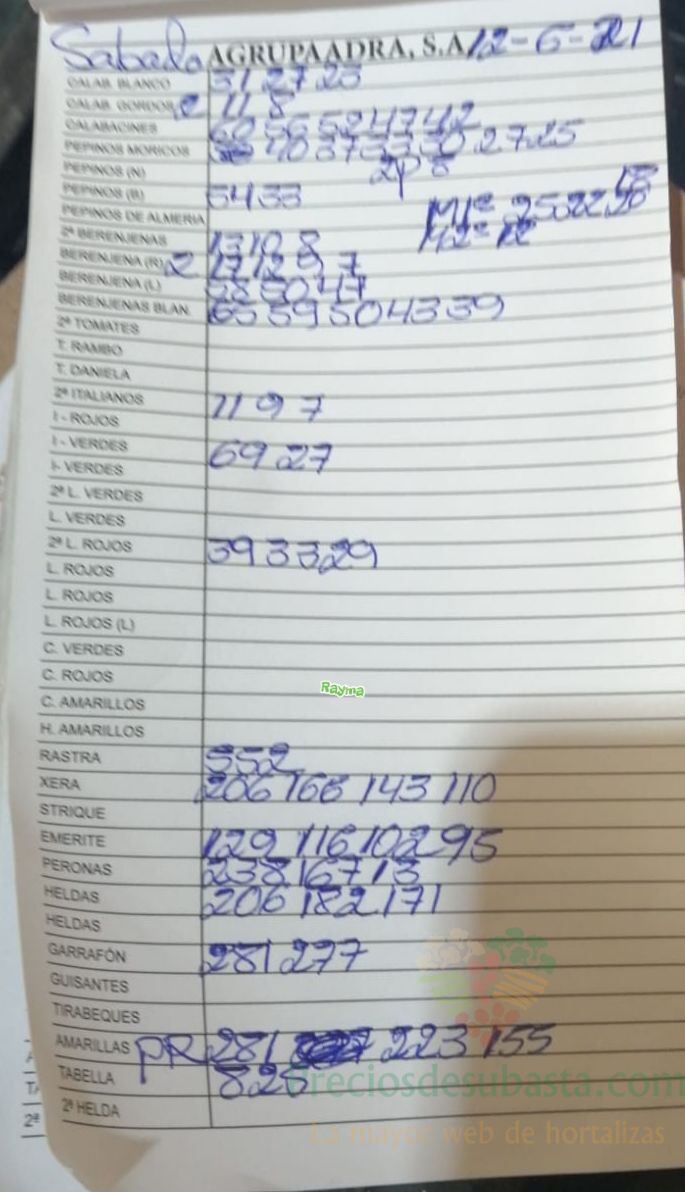 Sabado AGRUPAADRA, S.A 12-6-21
CALAB. BLANCO 31 27 23
CALAB. GORDOS 2 11 8
CALABACINES 60 56 52 47 42
PEPINOS MORICOS 40 37 33 30 27 25
PEPINOS (N) 2P 8
PEPINOS (B) 54 33
PEPINOS DE ALMERIA
2ª BERENJENAS 13 10 8
BERENJENA (R) 2 17 12 9 7
BERENJENA (L) 58 50 47
BERENJENAS BLAN. 65 59 50 43 39
2ª TOMATES
T. RAMBO
T. DANIELA
2ª ITALIANOS 11 9 7
I - ROJOS
I - VERDES 69 27
I- VERDES
2ª L. VERDES
L. VERDES
2ª L. ROJOS 39 33 29
L. ROJOS
L. ROJOS
L. ROJOS (L)
C. VERDES
C. ROJOS
Rayma
C. AMARILLOS
H. AMARILLOS
RASTRA 552
XERA 206 166 143 110
STRIQUE
EMERITE 129 116 102 95
PERONAS 238 167 13
HELDAS 206 182 171
HELDAS
GARRAFÓN 281 277
GUISANTES
TIRABEQUES
AMARILLAS PR 281 223 155
TABELLA 825
Preciosdesubasta.com
2ª HELDA
La mayor web de hortalizas